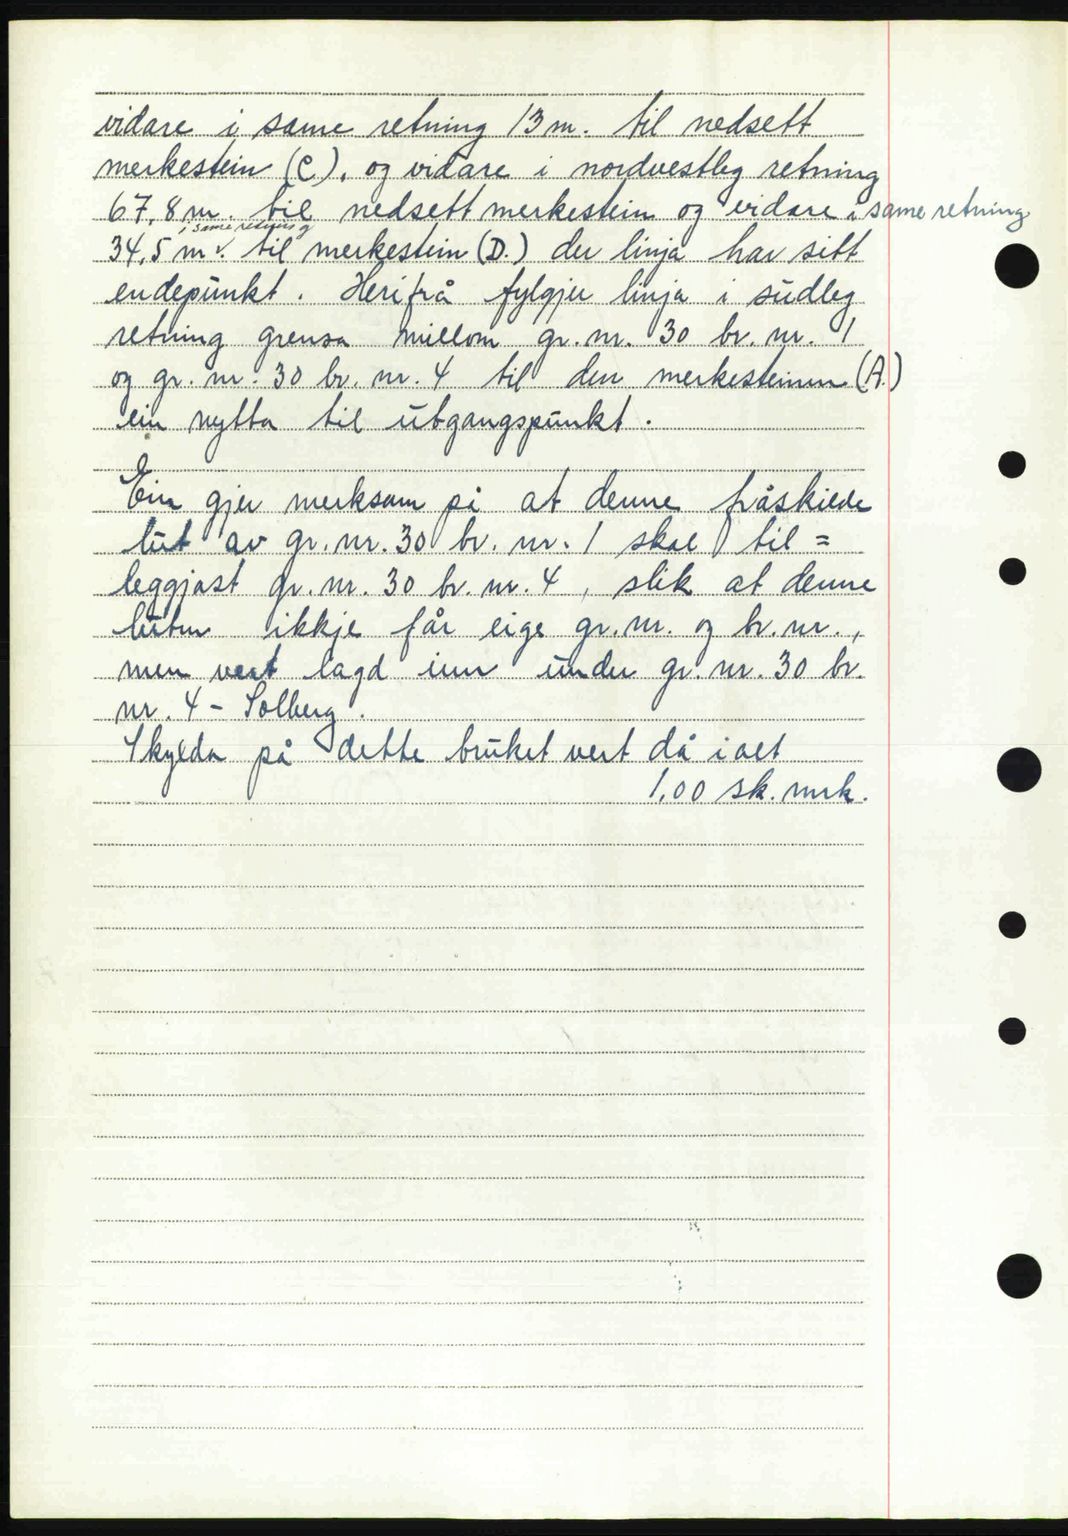 vidare i same retning 13 m. til nedsett
merkestein (C). og vidare i nordvestleg retning
67,8 m. til nedsett merkestein og vidare i same retning
i same retning
34,5 m √. til merkestein (D.) der linja har sitt
endepunkt. Herifrå fylgjer linja i sudleg
retning grensa millom gr. nr. 30 br. nr. 1
og gr. nr. 30 br. nr. 4 til den merkesteinen (A.)
ein nytta til utgangspunkt.
Ein gjer merksam på at denne fråskilde
lut av gr. nr. 30 br. nr. 1 skal til =
leggjast gr. nr. 30 br. nr. 4, slik at denne
luten ikkje får eige gr. nr. og br. nr.,
men vert lagd inn under gr. nr. 30 br.
nr. 4 - Solberg.
Skylda på dette bruket vert då i alt
1,00 sk. mrk.